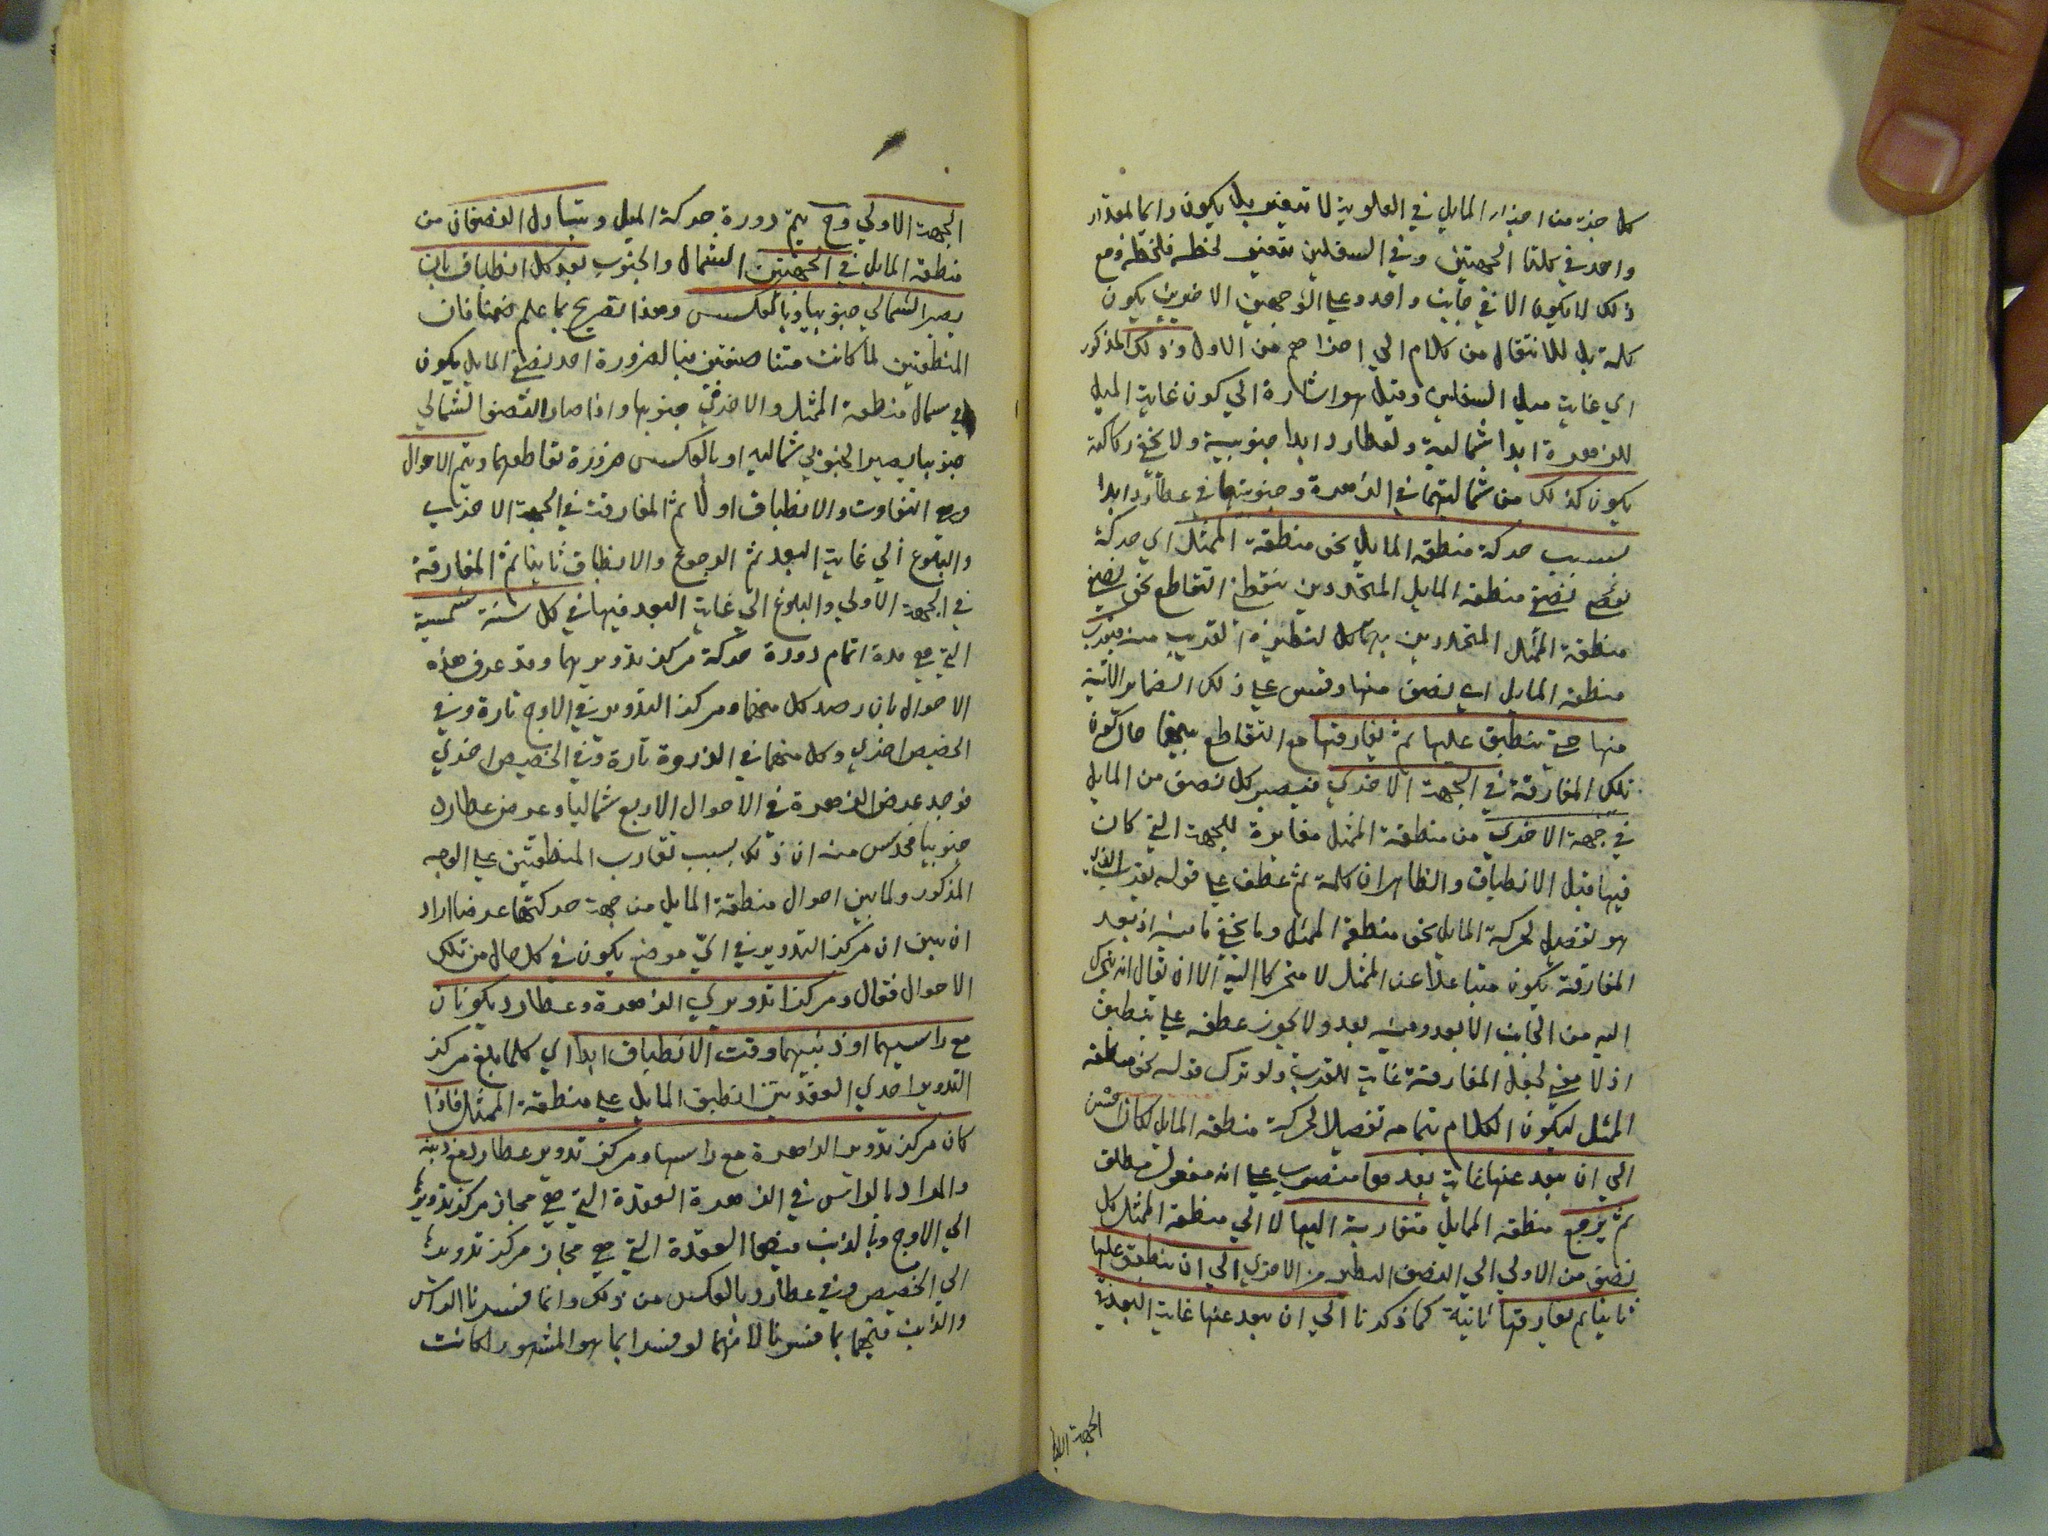 كل جزء من اجزاء المايل في العلوية لا تتعين بل يكون دائما لمقدار
واحد في كلتا الجهتين وفي السفلين يتعين لحظة فلحظة ومع
ذلك لا يكون الا في جانب واحد وعلى الوجهين الاخيرين يكون
كلمة بل للانتقال من كلام الى اخر اهم من الاول وذلك المذكور
اي غاية ميل السفلين وقيل هو اشارة الى كون غاية الميل
للزهرة ابدا شمالية ولعطارد ابدا جنوبية ولا يخفى ركاكته
يكون كذلك من شماليتهما في الزهرة وجنوبيتهما في عطارد ابدا
بسبب حركة منطقة المايل نحو منطقة الممثل اي حركة
نصفي منطقة المايل المتحددين بنقطتي التقاطع نحو نصفي
منطقة الممثل المتحددين بهما كل لنظيره القريب منه فيقرب
منطقة المايل اي نصف منها وقس على ذلك الضماير الاتية
منها حتى ينطبق عليها ثم يفارقها مع التقاطع حال كون
تلك المفارقة في الجهة الاخرى فيصير كل نصف من المايل
في جهة الاخرى من منطقة الممثل مغايرة للجهة التي كان
فيها قبل الانطباق والظاهر ان كلمة ثم عطف على قوله يقرب الذي
هو تفصيل لحركة المايل نحو منطقة الممثل وما يخفى ما فيه اذ بعد
المفارقة يكون متباعدا عن الممثل لا متحركا اليه الا ان يقال انه يتحرك
اليه من الجانب الابعد وفيه بعد ولا يجوز عطفه على ينطبق
اذ لا معنى لجعل المفارقة غاية للقرب ولو ترك قوله نحو منطقة
الممثل ليكون الكلام بتمامه تفصيلا لحركة منطقة المايل لكان احسن
الى ان يبعد عنها غاية بعدها منصوب على انه مفعول مطلق
ثم يرجع منطقة المايل متقاربة اليها لا الى منطقة الممثل كل
نصف من الاولى الى النصف النظير من الاخرى الى ان ينطبق عليها
ثانيا ثم يفارقها ثانية كما ذكرنا الى ان يبعد عنها غاية البعد في
الجهة الاولى
الجهة الاولى وح يتم دورة حركة الميل ويتبادل النصفان من
منطقة المايل في الجهتين الشمال والجنوب بعد كل انطباق بان
يصير الشمالي جنوبيا وبالعكس وهذا تصريح بما علم ضمنا فان
المنطقتين لما كانت متناصفتين فبالضرورة احد نصفي المايل يكون
في شمال منطقة الممثل والاخر في جنوبها واذا صار النصف الشمالي
جنوبيا يصير الجنوبي شماليا وبالعكس ضرورة تقاطعهما ويتم الاحوال
وهي التفاوت والانطباق اولا ثم المفارقة في الجهة الاخرى
والبلوغ الى غاية البعد ثم الرجوع والانطباق ثانيا ثم المفارقة
في الجهة الاولى والبلوغ الى غاية البعد فيها في كل سنة شمسية
التي هي مدة اتمام دورة حركة مركز تدويريهما وقد عرف هذه
الاحوال بان رصد كل منهما ومركز التدوير في الاوج تارة وفي
الحضيض اخرى وكل منهما في الذروة تارة وفي الحضيض اخرى
فوجد عرض الزهرة في الاحوال الاربع شماليا وعرض عطارد
جنوبيا فحدس منه ان ذلك بسبب تقارب المنطقتين على الوجه
المذكور ولما بين احوال منطقة المايل من جهة حركتها عرضا اراد
ان يبين ان مركز التدوير في اي موضع يكون في كل حال من تلك
الاحوال فقال ومركزا تدويري الزهرة وعطارد يكونان
مع راسيهما او ذنبيهما وقت الانطباق ابدا اي كلما بلغ مركز
التدوير احدى العقدتين انطبق المايل على منطقة الممثل فاذا
كان مركز تدوير الزهرة مع راسها ومركز تدوير عطارد مع ذنبه
والمراد بالراس في الزهرة العقدة التي هي مجاز مركز تدويرها
الى الاوج وبالذنب منها العقدة التي هي مجاز مركز تدويرها
الى الحضيض وفي عطارد بالعكس من ذلك وانما فسرنا الراس
والذنب فيهما بما فسرنا لانهما لو فسرا بما هو المشهور لكانت